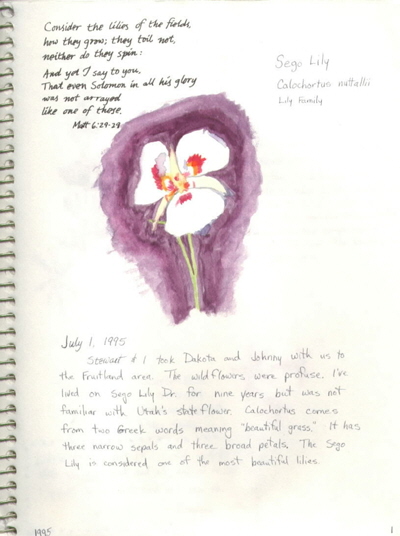 Consider the lilies of the fields,
how they grow; they toil not,
neither do they spin:
And yet I say to you,
That even Solomon in all his glory
was not arrayed
like one of these.
Matt 6:29-29
Sego Lily
Calochortus nuttallii
Lily Family
July 1, 1995
Stewart & I took Dakota and Johnny with us to
the Fruitland area. The wildflowers were profuse. I've
lived on Sego Lily Dr. for nine years but was not
familiar with Utah's state flower. Calochortus comes
from two Greek words meaning "beautiful grass." It has
three narrow sepals and three broad petals. The Sego
Lily is considered one of the most beautiful lilies.
1995
1